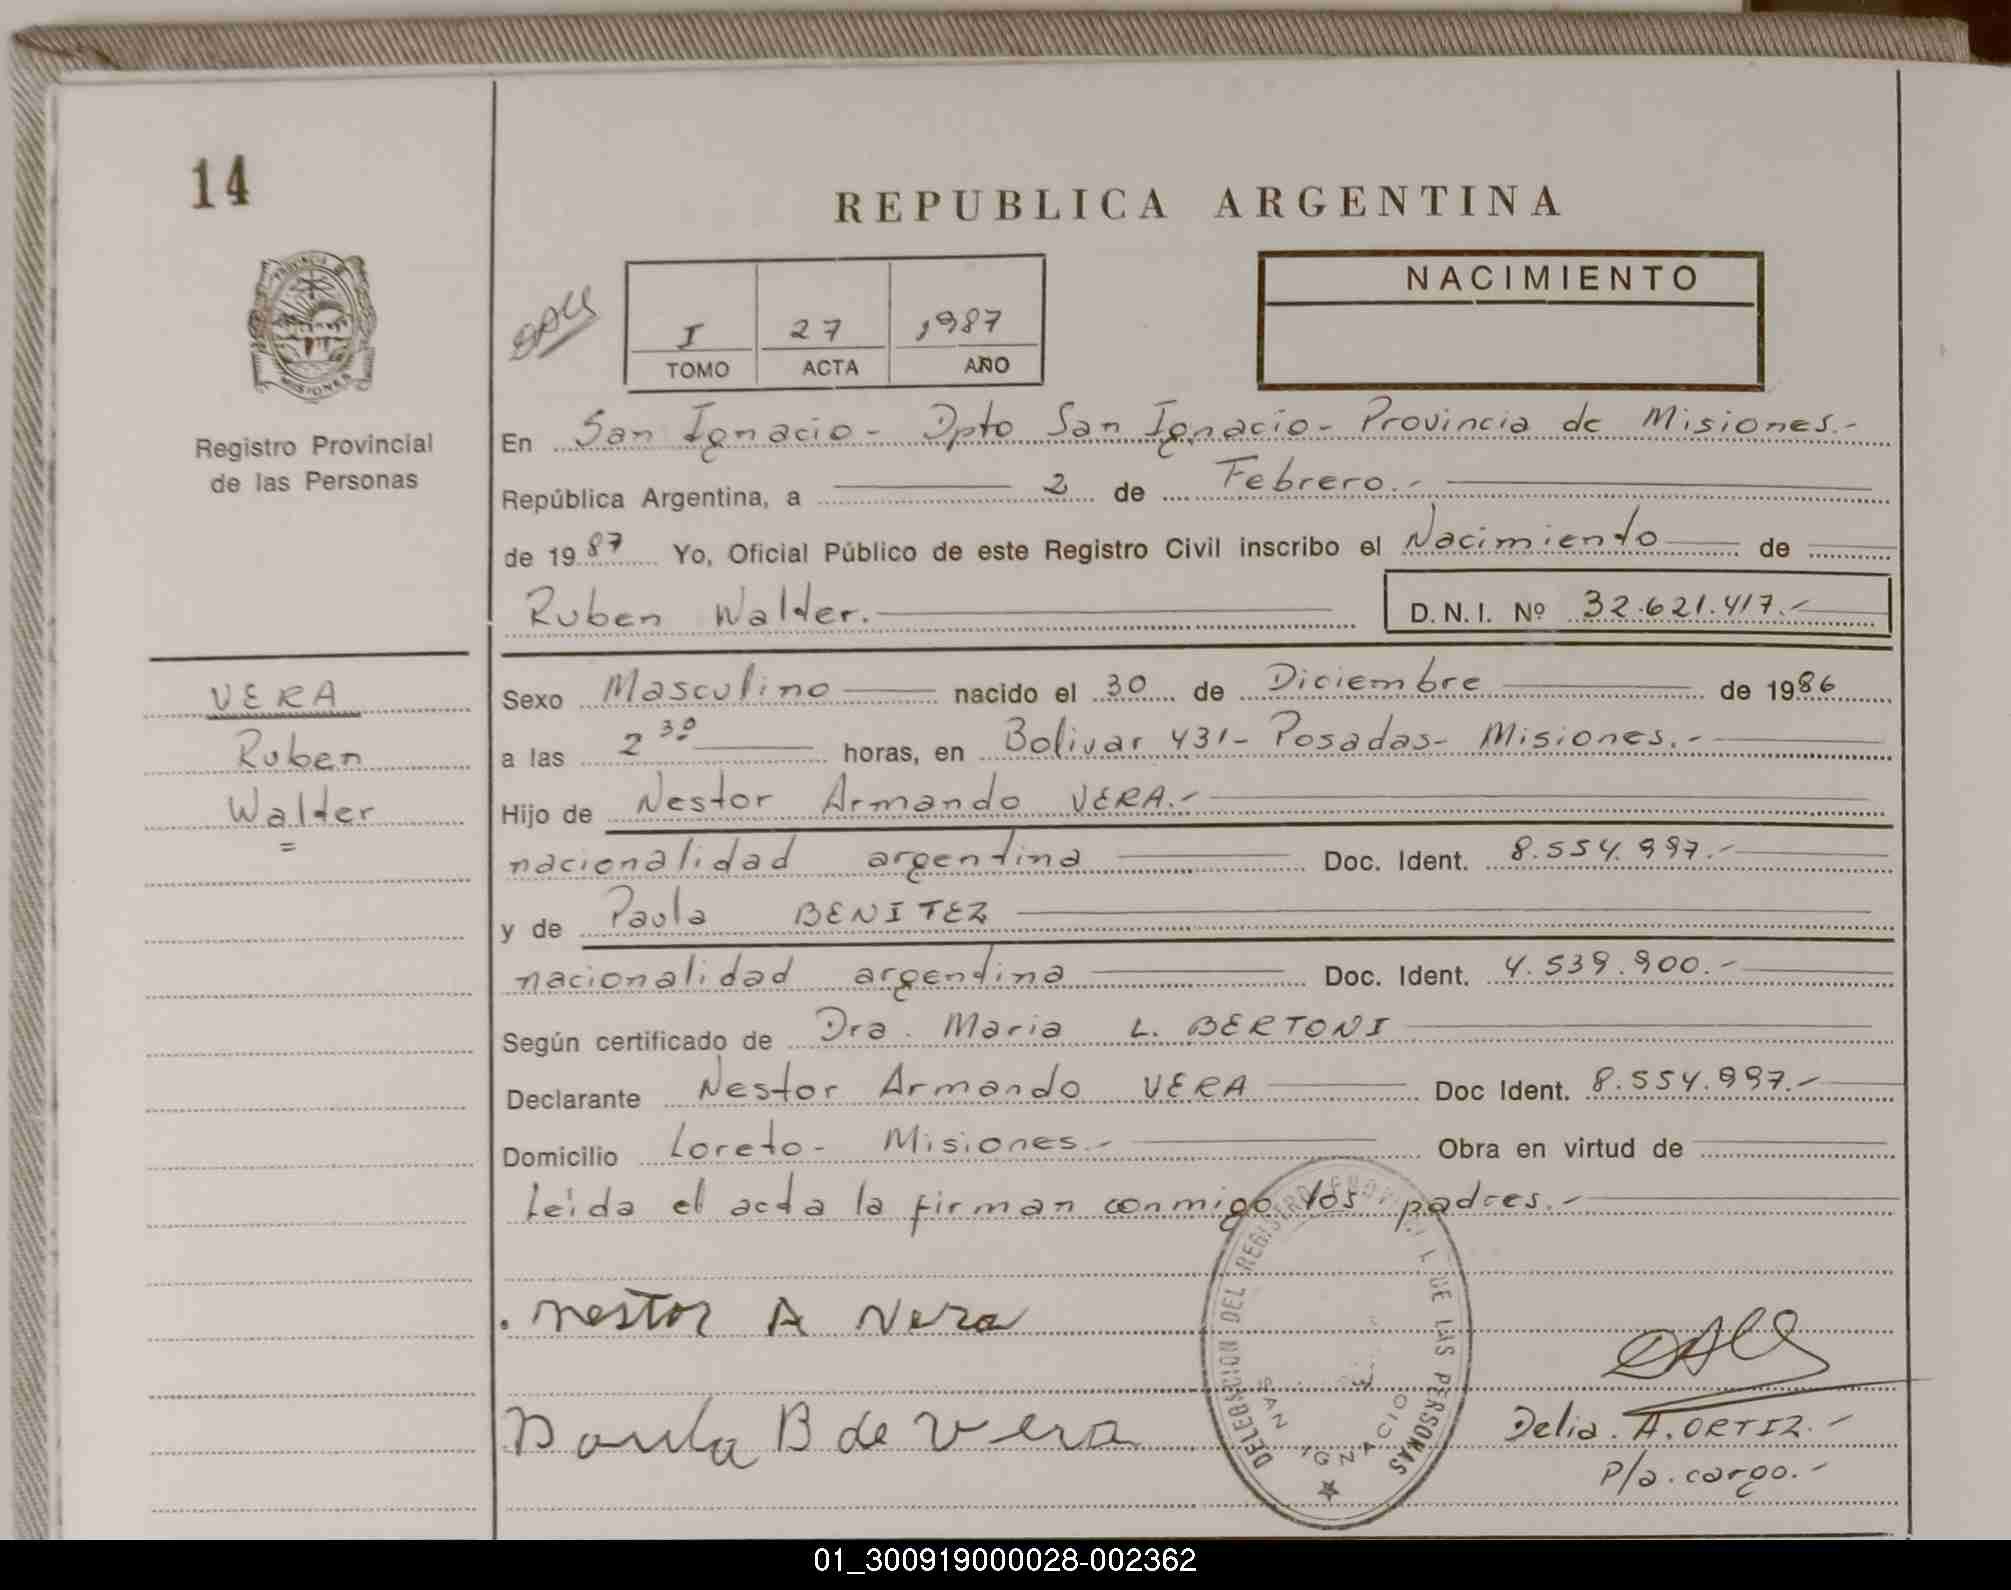 14
REPUBLICA ARGENTINA
PROVINCIA DE
MISIONES
Registro Provincial
de las Personas
I 27 1987
TOMO ACTA AÑO
NACIMIENTO
En San Ignacio - Dpto San Ignacio - Provincia de Misiones.-
República Argentina, a 2 de Febrero.-
de 1987 Yo, Oficial Público de este Registro Civil inscribo el Nacimiento de
Ruben Walter. D.N.I. Nº 32.621.417.-
VERA
Ruben
Walter
=
Sexo Masculino nacido el 30 de Diciembre de 1986
a las 2 30 horas, en Bolivar 431- Posadas- Misiones.-
Hijo de Nestor Armando VERA.-
nacionalidad argentina Doc. Ident. 8.554.997.-
y de Paula BENITEZ
nacionalidad argentina Doc. Ident. 4.539.900.-
Según certificado de Dra. Maria L. BERTONI
Declarante Nestor Armando VERA Doc Ident. 8.554.997.-
Domicilio Loreto- Misiones.- Obra en virtud de
Leida el acta la firman conmigo los padres.-
Nestor A Vera
Paula B de Vera
DELEGACION DEL REGISTRO PROVINCIAL DE LAS PERSONAS
SAN IGNACIO
Delia. A. ORTIZ.-
P/a. cargo.-
01_300919000028-002362